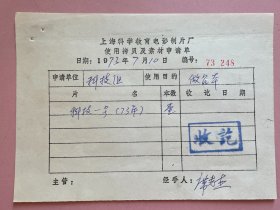 上海科学教育电影制片厂
使用拷贝及素材申请单
日期：1973年7月10日 编号：73 248
申请单位 科技组 使用目的
片名 本数 收讫日期
科技一号（73年） 壹
收讫
主管： 经手人：